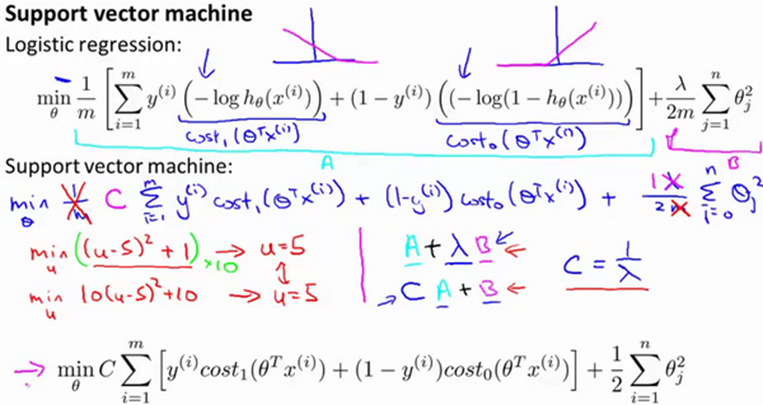 Support vector machine
Logistic regression:
min_θ 1/m [ ∑_{i=1}^{m} y^{(i)} (−log h_θ(x^{(i)})) + (1 − y^{(i)}) ((−log(1 − h_θ(x^{(i)}))) ] + λ/2m ∑_{j=1}^{n} θ_j^2
cost₁(θᵀx^{(i)}) cost₀(θᵀx^{(i)})
A B
Support vector machine:
min_θ 1/m C ∑_{i=1}^{m} y^{(i)} cost₁(θᵀx^{(i)}) + (1−y^{(i)}) cost₀(θᵀx^{(i)}) + 1 λ/2m ∑_{i=0}^{n} θ_j^2
min_u ((u−5)² + 1) ×10 → u=5 A + λB ← C = 1/λ
min_u 10(u−5)²+10 → u=5 → C A + B ←
→ min_θ C ∑_{i=1}^{m} [ y^{(i)} cost₁(θᵀx^{(i)}) + (1 − y^{(i)}) cost₀(θᵀx^{(i)}) ] + 1/2 ∑_{i=1}^{n} θ_j^2